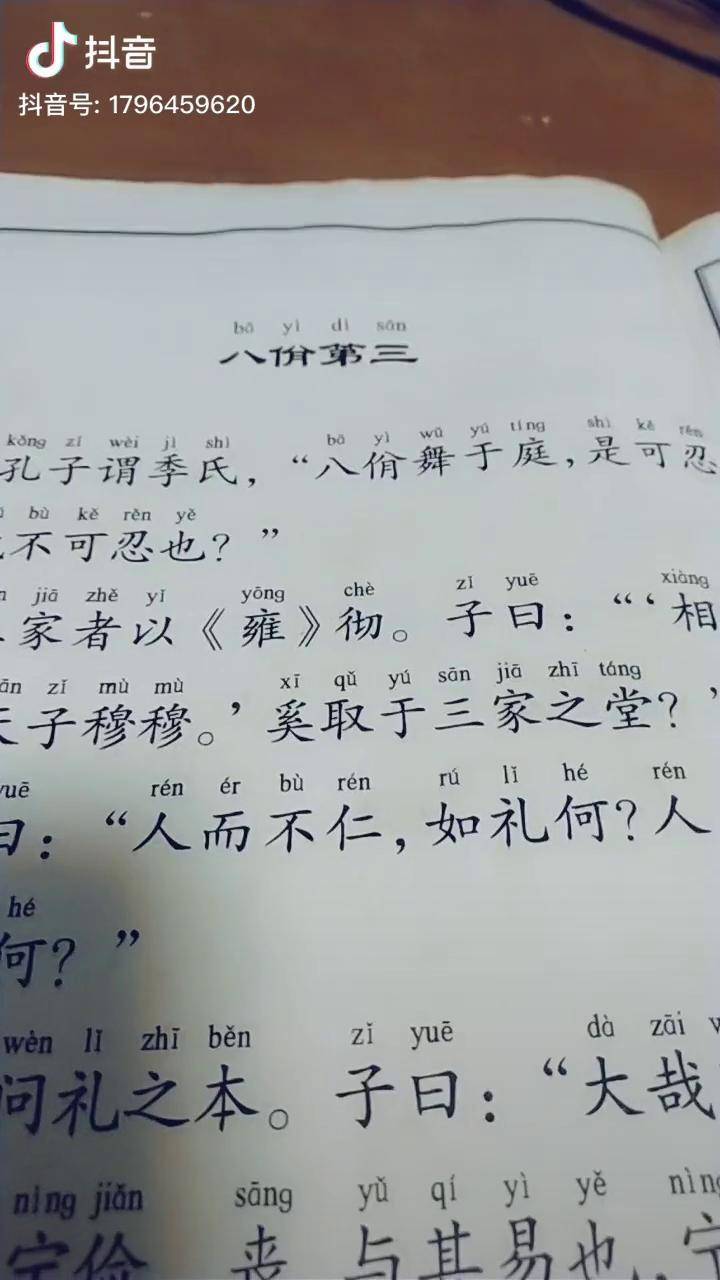 抖音
抖音号: 1796459620
bā yì dì sān
八佾第三
kǒng zǐ wèi jì shì bā yì wǔ yú tíng shì kě rěn
孔子谓季氏，“八佾舞于庭，是可忍
bù kě rěn yě
不可忍也？”
jiā zhě yǐ yōng chè zǐ yuē xiàng
家者以《雍》彻。子曰：“‘相
zǐ mù mù xī qǔ yú sān jiā zhī táng
天子穆穆。’奚取于三家之堂？
yuē rén ér bù rén rú lǐ hé rén
曰：“人而不仁，如礼何？人
hé
何？”
wèn lǐ zhī běn zǐ yuē dà zāi
问礼之本。子曰：“大哉
nìng jiǎn sāng yǔ qí yì yě nìng
宁俭 丧 与其易也，宁